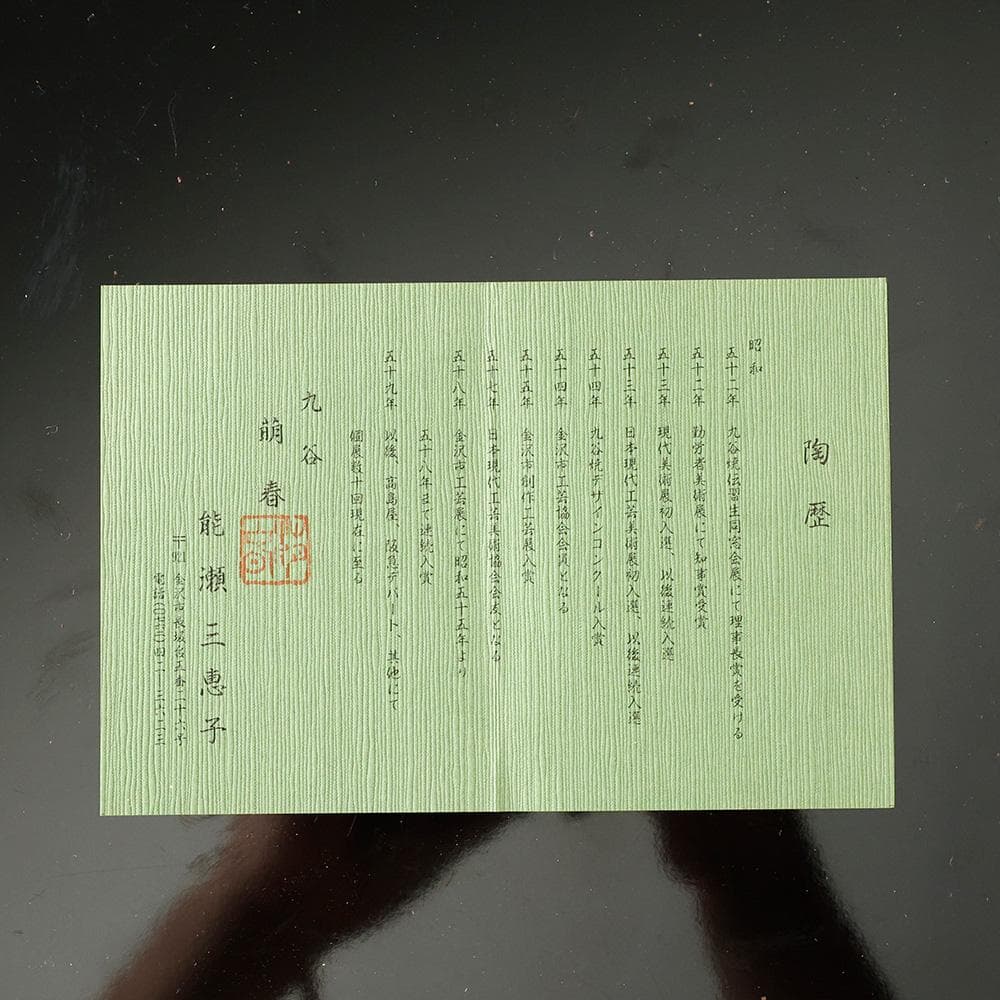 陶歴
昭和
五十二年 九谷焼伝習生同窓会展にて理事長賞を受ける
五十二年 勤労者美術展にて知事賞受賞
五十三年 現代美術展初入選、以後連続入選
五十三年 日本現代工芸美術展初入選、以後連続入選
五十四年 九谷焼デザインコンクール入賞
五十四年 金沢市工芸協会会員となる
五十五年 金沢市創作工芸展入賞
五十七年 日本現代工芸美術協会会友となる
五十八年 金沢市工芸展にて昭和五十五年より
五十八年まで連続入賞
五十九年 以後、高島屋、阪急デパート、其他にて
個展数十回現在に至る
九谷
萌春
能瀬三恵子
〒921 金沢市長坂台五番二十六号
電話(〇七六二)四二―三六二三